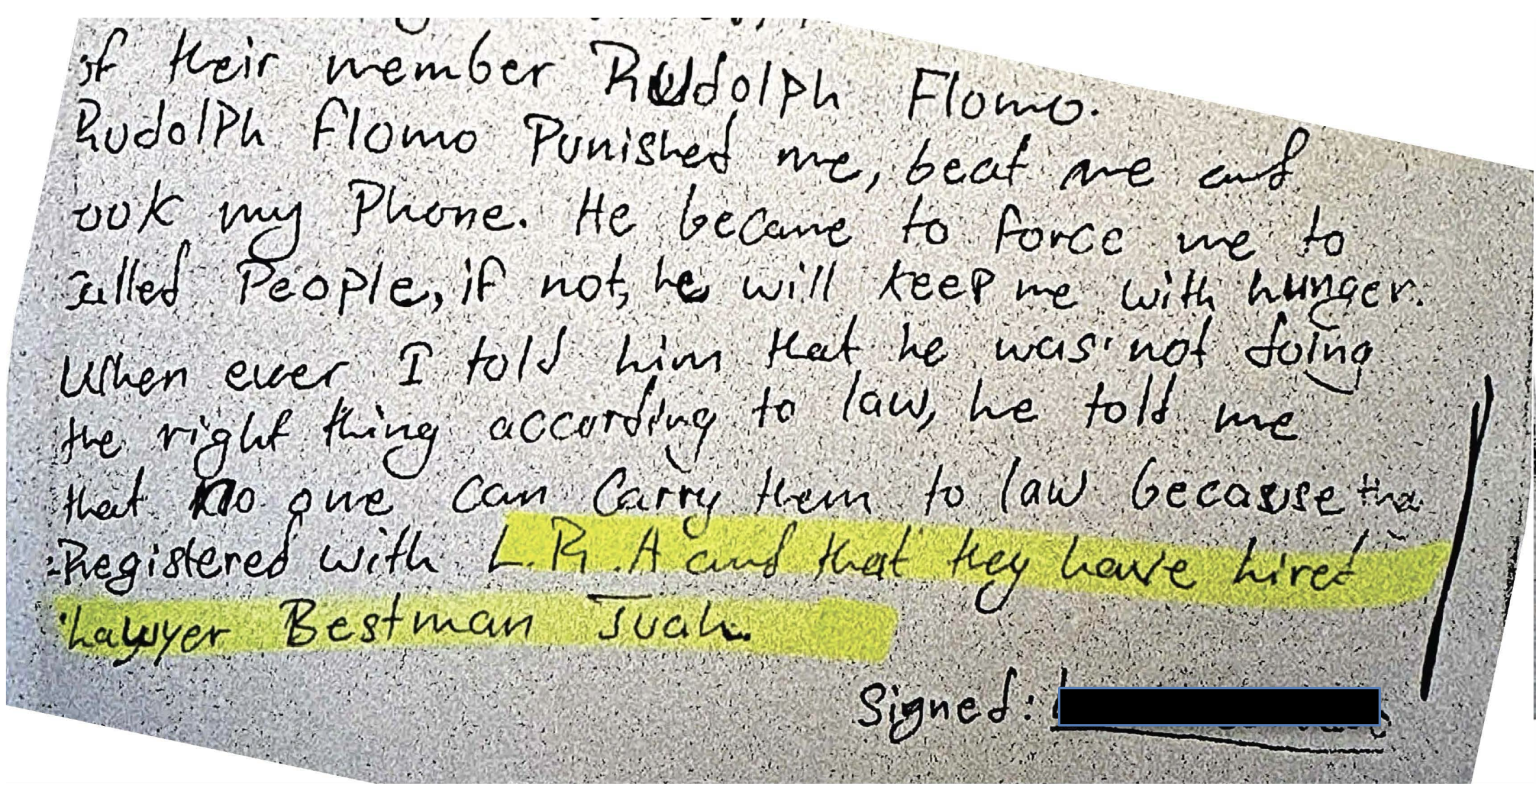 of their member Rudolph Flomo.
Rudolph Flomo Punished me, beat me and
ook my Phone. He became to force me to
called People, if not, he will keep me with hunger.
When ever I told him that he was not doing
the right thing according to law, he told me
that no one can Carry them to law because tha
Registered with L.R.A and that they have hired
Lawyer Bestman Juah.
Signed: